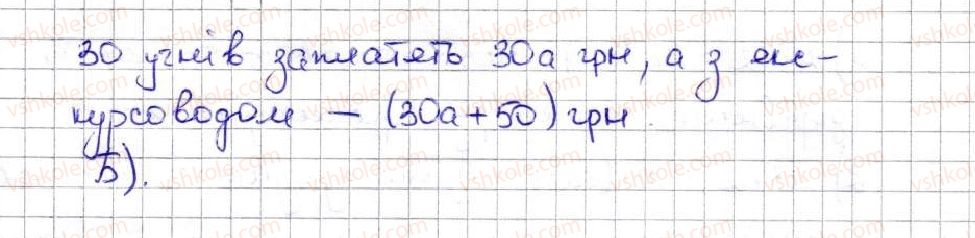 30 учнів заплатять 30а грн, а з екс-
курсоводом – (30а + 50) грн.
Б).